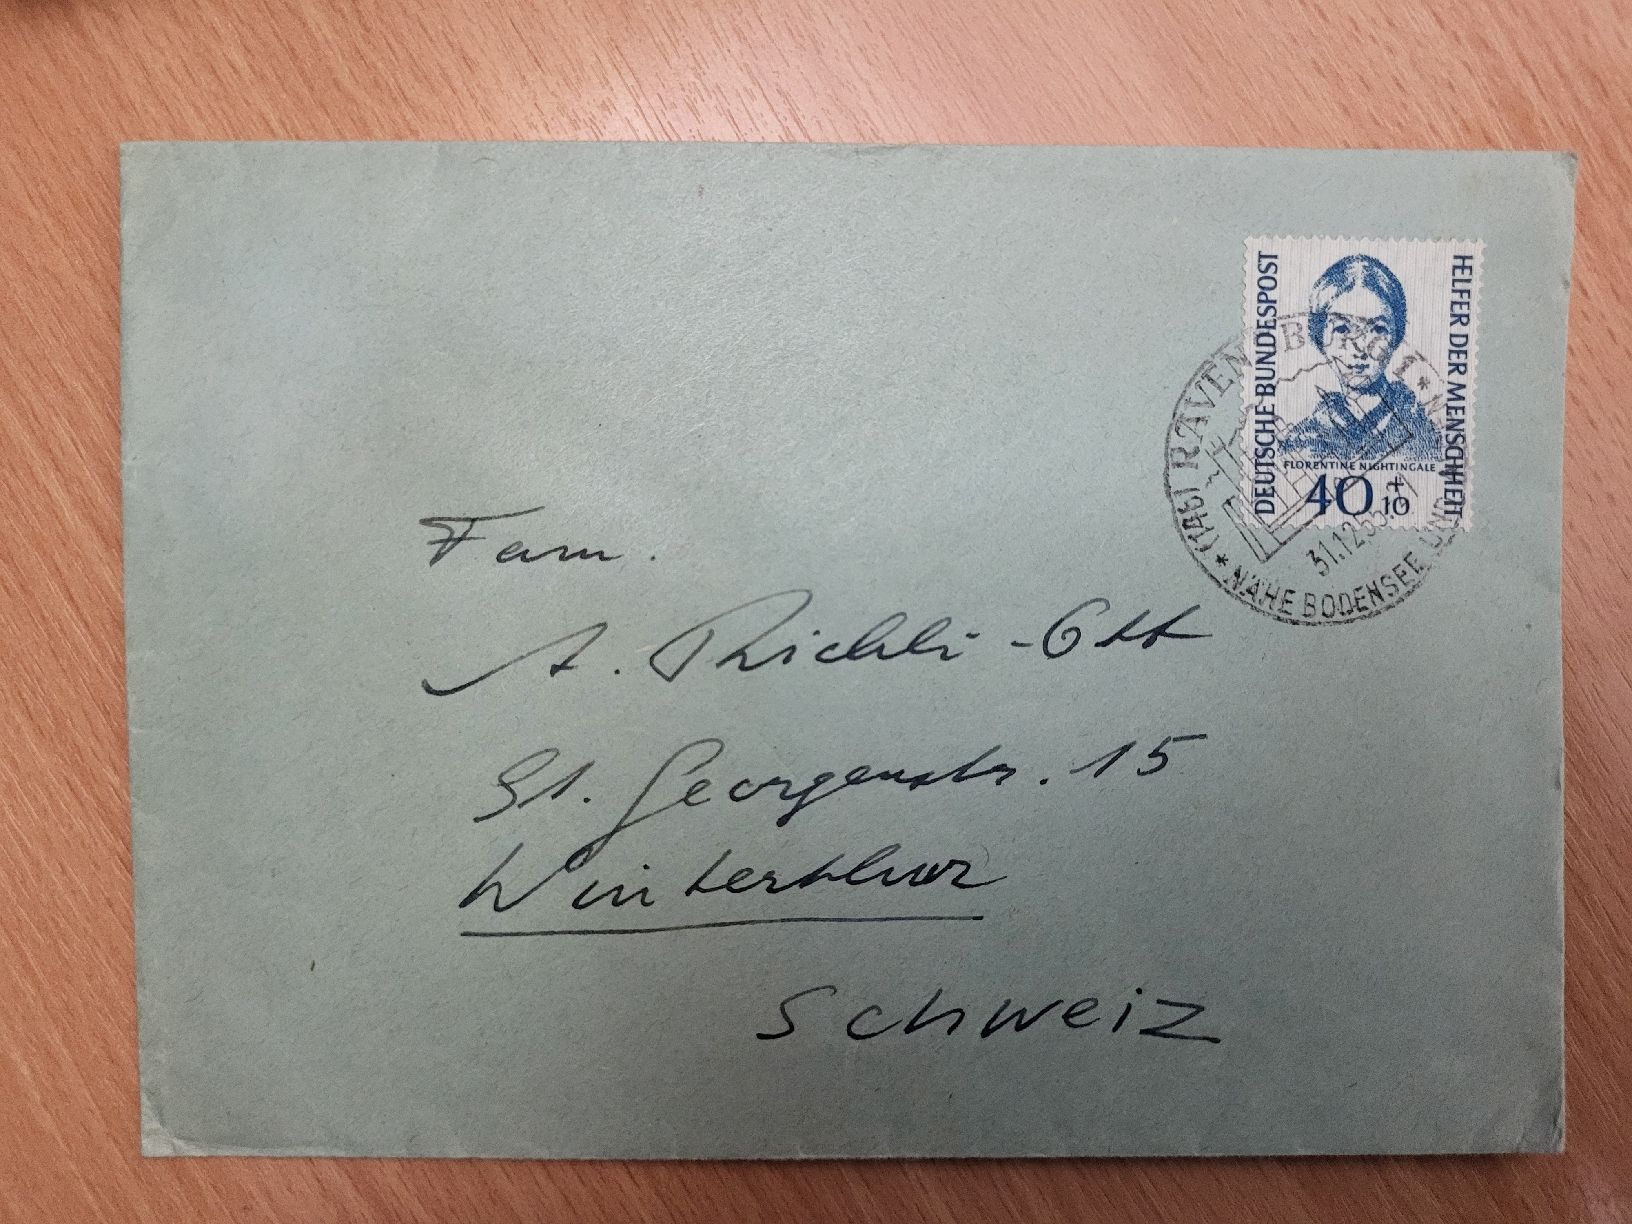 DEUTSCHE BUNDESPOST
HELFER DER MENSCHHEIT
FLORENTINE NIGHTINGALE
40 + 10
(14b) RAVENSBURG 1
31.12.55
NÄHE BODENSEE UND
Fam.
A. Richli-Ott
St. Georgenstr. 15
Winterthur
Schweiz